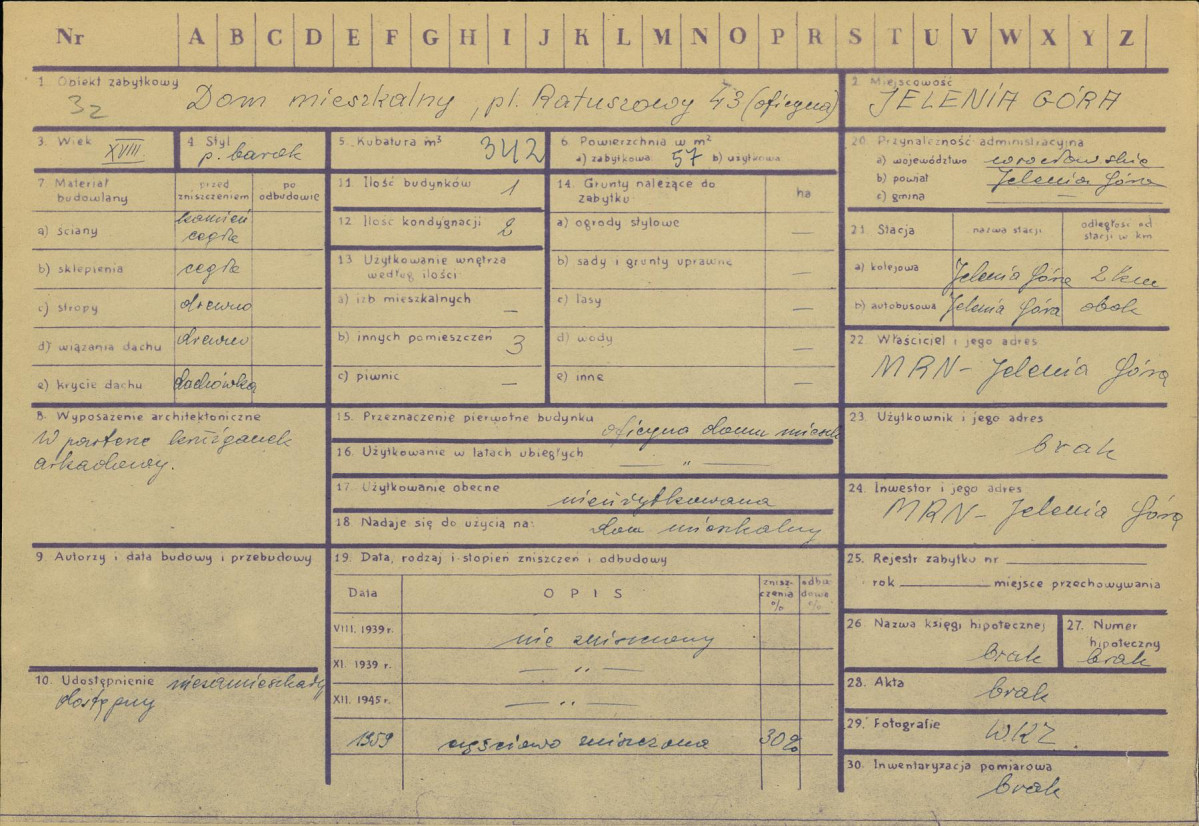 Nr A B C D E F G H I J K L M N O P R S T U V W X Y Z
1. Obiekt zabytkowy
32 Dom mieszkalny, pl. Ratuszowy 43 (oficyna)
2. Miejscowość
JELENIA GÓRA
3. Wiek XVIII
4. Styl
p. barok
5. Kubatura m³ 342
6. Powierzchnia w m²
a) zabytkowa 57 b) użytkowa
7. Materiał budowlany
przed zniszczeniem
po odbudowie
a) ściany kamień cegła
b) sklepienia cegła
c) stropy drewno
d) wiązania dachu drewno
e) krycie dachu dachówka
8. Wyposażenie architektoniczne
W parterze krużganek
arkadowy.
9. Autorzy i data budowy i przebudowy
10. Udostępnienie niezamieszkały
dostępny
11. Ilość budynków 1
12. Ilość kondygnacji 2
13 Użytkowanie wnętrza
według ilości:
a) izb mieszkalnych —
b) innych pomieszczeń 3
c) piwnic —
14. Grunty należące do
zabytku:
ha
a) ogrody stylowe —
b) sady i grunty uprawne —
c) lasy —
d) wody —
e) inne —
15. Przeznaczenie pierwotne budynku oficyna domu mieszk
16. Użytkowanie w latach ubiegłych — " —
17. Użytkowanie obecne nieużytkowana
18. Nadaje się do użycia na: dom mieszkalny
19. Data, rodzaj i stopień zniszczeń i odbudowy
Data OPIS znisz-czenia % odbu-dowa %
VIII. 1939 r. nie zniszczony
XI. 1939 r. — " —
XII. 1945 r. — " —
1959 częściowo zniszczona 30%
20. Przynależność administracyjna
a) województwo wrocławskie
b) powiat Jelenia Góra
c) gmina —
21. Stacja nazwa stacji odległość od stacji w km
a) kolejowa Jelenia Góra 2 km
b) autobusowa Jelenia Góra obok
22. Właściciel i jego adres
MRN - Jelenia Góra
23. Użytkownik i jego adres
brak
24. Inwestor i jego adres
MRN - Jelenia Góra
25. Rejestr zabytku nr
rok miejsce przechowywania
26. Nazwa księgi hipotecznej
brak
27. Numer
hipoteczny
brak
28. Akta brak
29. Fotografie WKZ.
30. Inwentaryzacja pomiarowa
brak